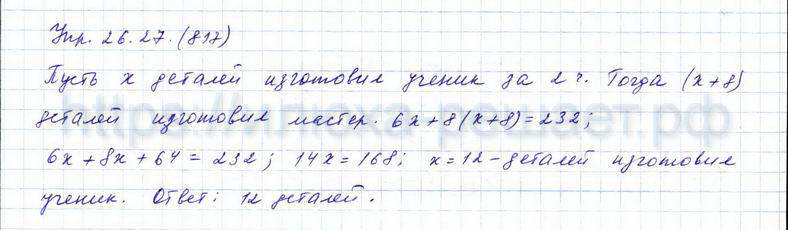 Упр. 26.27. (817)
Пусть x деталей изготовил ученик за 2 ч. Тогда (x+8)
деталей изготовил мастер. 6x+8(x+8)=232;
6x+8x+64=232; 14x=168; x=12-деталей изготовил
ученик. Ответ: 12 деталей.